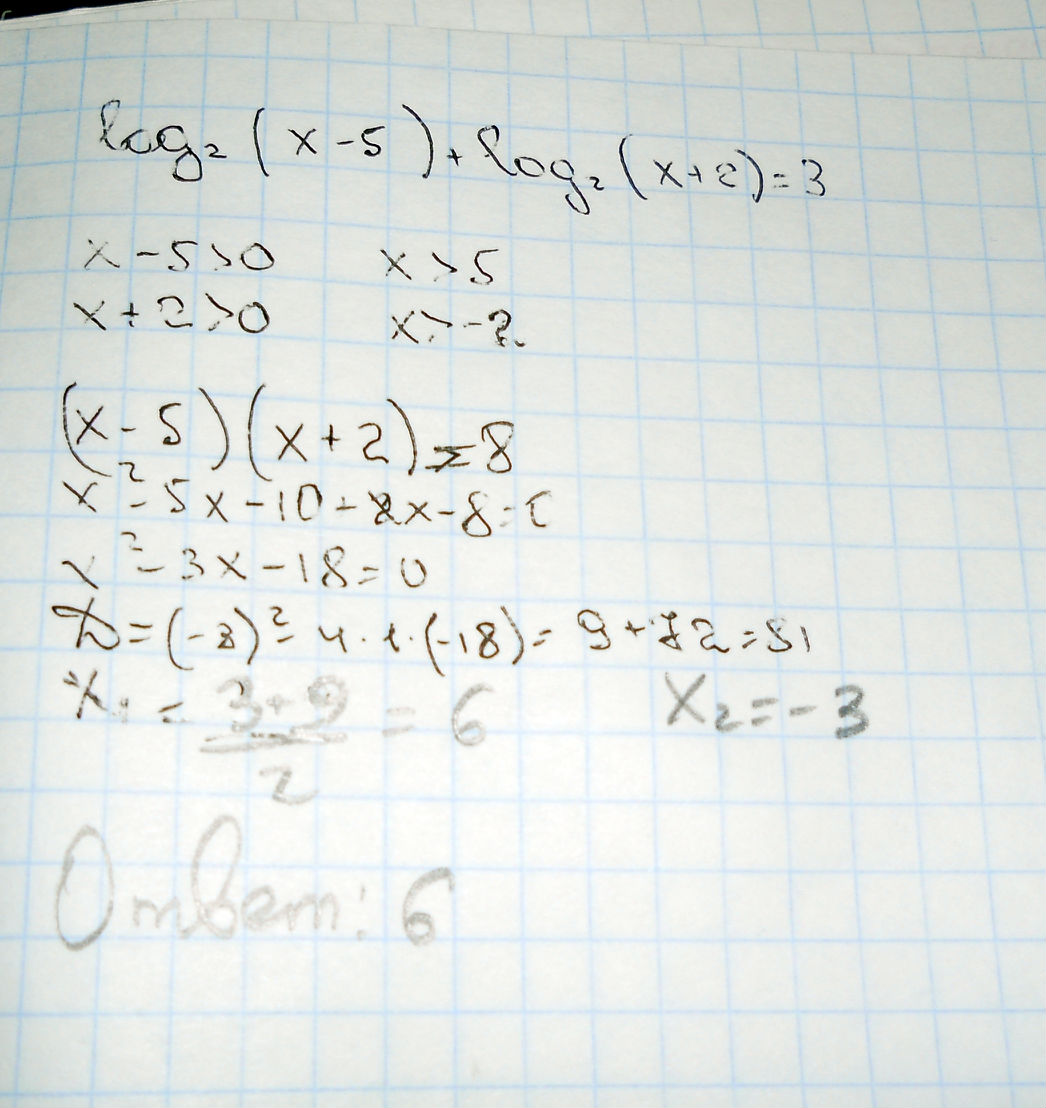 log₂(x-5)+log₂(x+2)=3
x-5>0 x>5
x+2>0 x>-2
(x-5)(x+2)=8
x²-5x-10+2x-8=0
x²-3x-18=0
D=(-3)²-4·1·(-18)=9+72=81
x₁=(3+9)/2=6 x₂=-3
Ответ: 6